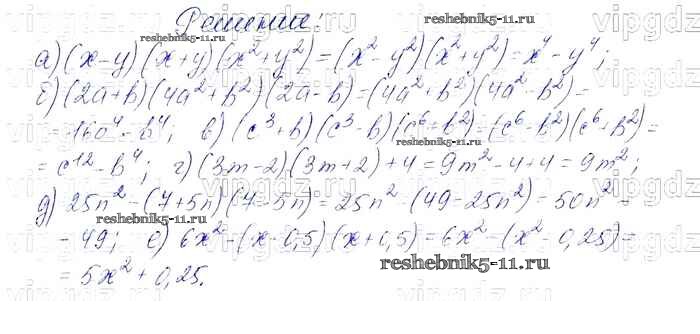 Решение:
reshebnik5-11.ru
reshebnik5-11.ru
а) (x-y)(x+y)(x²+y²)=(x²-y²)(x²+y²)=x⁴-y⁴;
б) (2a+b)(4a²+b²)(2a-b)=(4a²+b²)(4a²-b²)=
=16a⁴-b⁴; в) (c³+b)(c³-b)(c⁶+b²)=(c⁶-b²)(c⁶+b²)=
=c¹²-b⁴; г) (3m-2)(3m+2)+4=9m²-4+4=9m²;
д) 25n²-(7+5n)(7-5n)=25n²-(49-25n²)=50n²-
reshebnik5-11.ru
-49; е) 6x²-(x-0,5)(x+0,5)=6x²-(x²-0,25)=
reshebnik5-11.ru
=5x²+0,25.